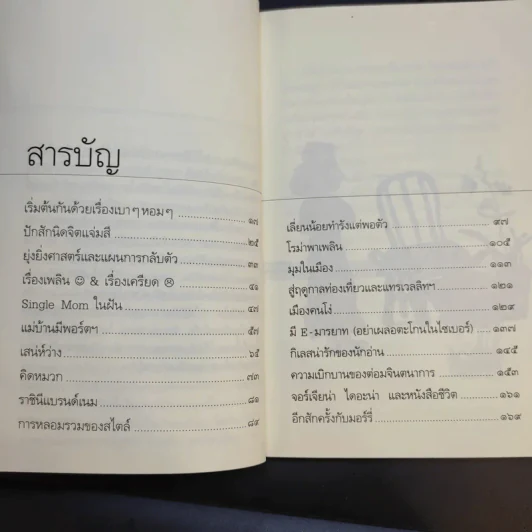 สารบัญ
เริ่มต้นกันด้วยเรื่องเบาๆ หอมๆ ๑๗
ปักสักนิดจิตแจ่มสี ๒๕
ยุ่งยิ่งศาสตร์และแผนการกลับตัว ๓๓
เรื่องเพลิน ☺ & เรื่องเครียด ☹ ๔๑
Single Mom ในฝัน ๔๗
แม่บ้านมีพอร์ตฯ ๕๗
เสน่ห์ว่าง ๖๕
คิดหมวก ๗๓
ราชินีแบรนด์เนม ๘๑
การหลอมรวมของสไตล์ ๘๙
เลี่ยนน้อยทำรังแต่พอตัว ๙๗
โรม่าพาเพลิน ๑๐๕
มุมในเมือง ๑๑๓
สู่ฤดูกาลท่องเที่ยวและแทรเวลลิทฯ ๑๒๑
เมืองคนโง่ ๑๒๙
มี E-มารยาท (อย่าเผลอตะโกนในไซเบอร์) ๑๓๗
กิเลสน่ารักของนักอ่าน ๑๔๕
ความเบิกบานของต่อมจินตนาการ ๑๕๓
จอร์เจียน่า ไดอะน่า และหนังสือชีวิต ๑๖๑
อีกสักครั้งกับมอร์รี่ ๑๖๙